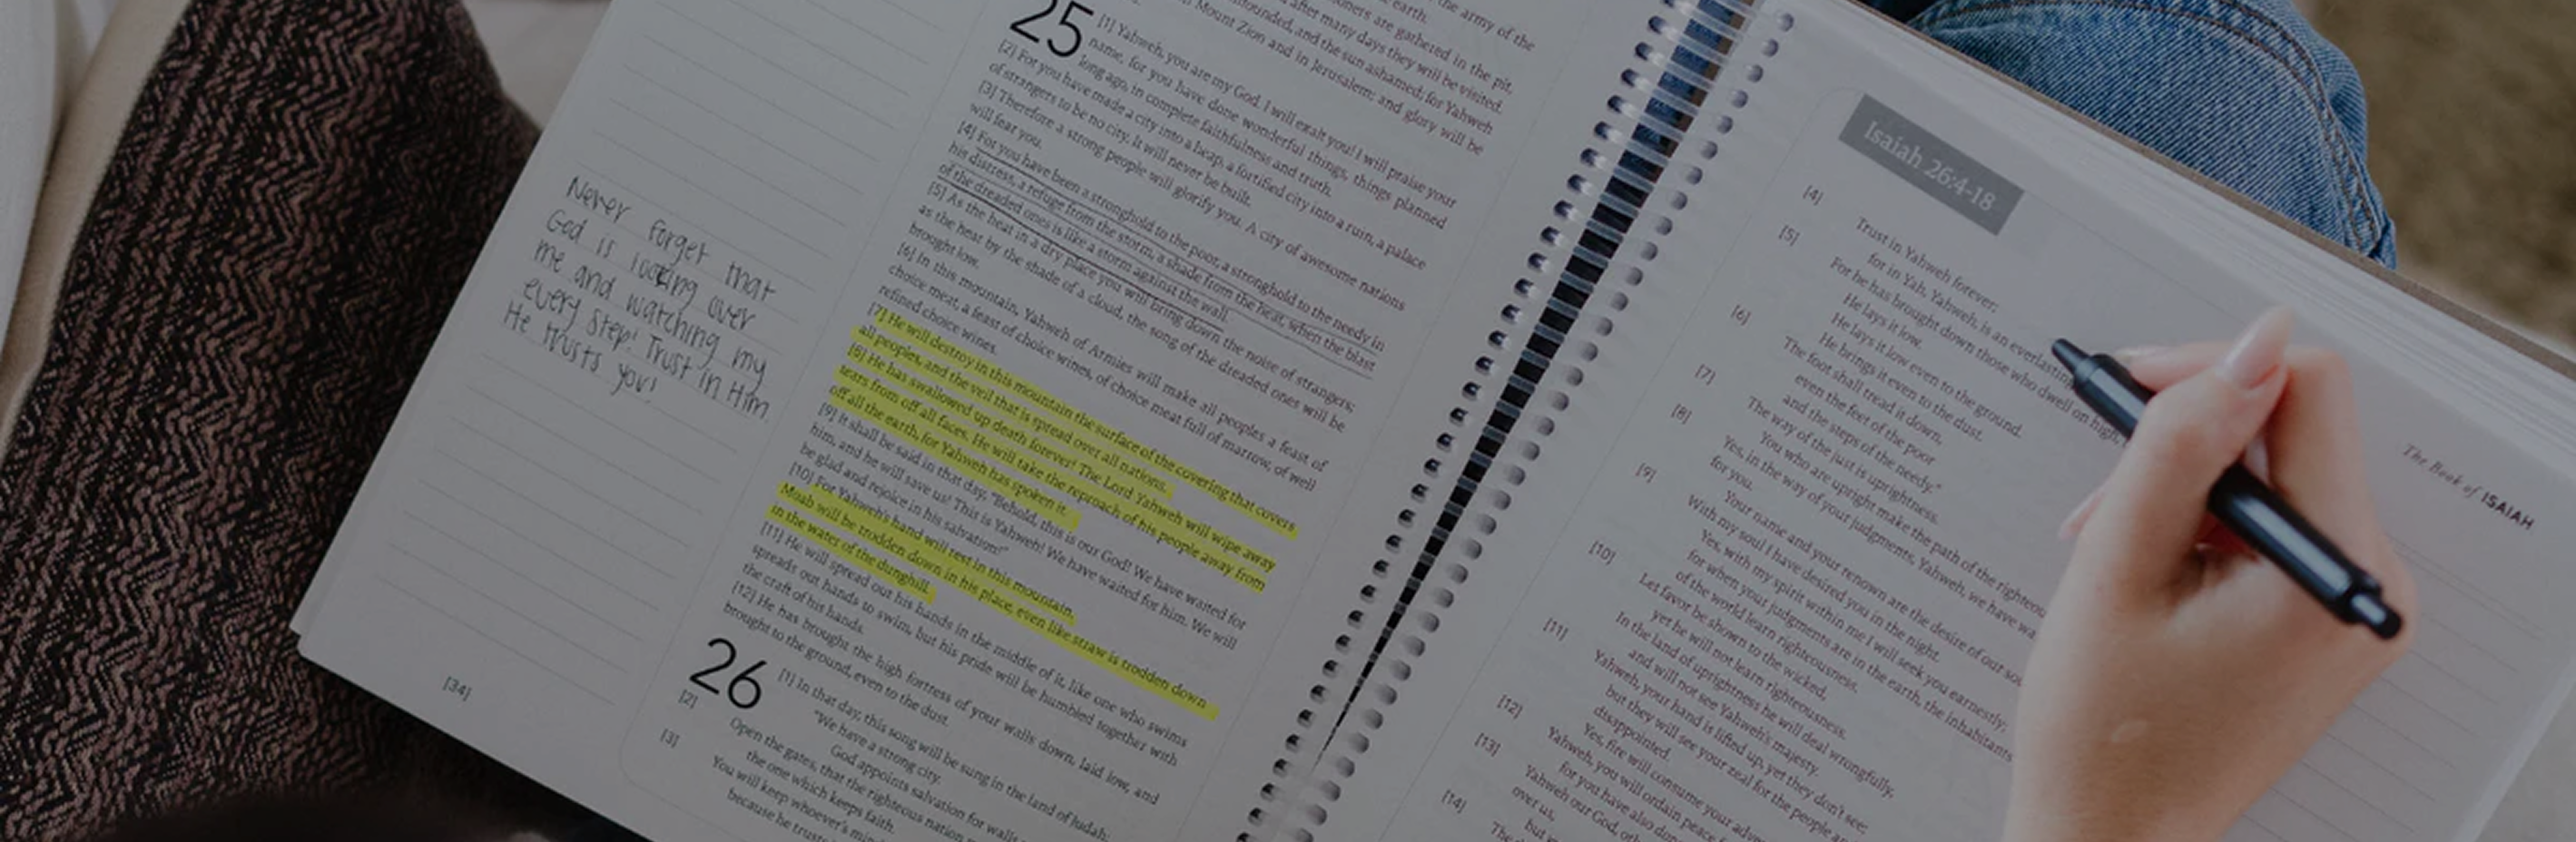 the army of the
earth.
ioners are gathered in the pit,
after many days they will be visited.
nfounded, and the sun ashamed; for Yahweh
Mount Zion and in Jerusalem; and glory will be
25
[1] Yahweh, you are my God. I will exalt you! I will praise your
name, for you have done wonderful things, things planned
long ago, in complete faithfulness and truth.
[2] For you have made a city into a heap, a fortified city into a ruin, a palace
of strangers to be no city. It will never be built.
[3] Therefore a strong people will glorify you. A city of awesome nations
will fear you.
[4] For you have been a stronghold to the poor, a stronghold to the needy in
his distress, a refuge from the storm, a shade from the heat, when the blast
of the dreaded ones is like a storm against the wall.
[5] As the heat in a dry place you will bring down the noise of strangers;
as the heat by the shade of a cloud, the song of the dreaded ones will be
brought low.
[6] In this mountain, Yahweh of Armies will make all peoples a feast of
choice meat, a feast of choice wines, of choice meat full of marrow, of well
refined choice wines.
[7] He will destroy in this mountain the surface of the covering that covers
all peoples, and the veil that is spread over all nations.
[8] He has swallowed up death forever! The Lord Yahweh will wipe away
tears from off all faces. He will take the reproach of his people away from
off all the earth, for Yahweh has spoken it.
[9] It shall be said in that day, "Behold, this is our God! We have waited for
him, and he will save us! This is Yahweh! We have waited for him. We will
be glad and rejoice in his salvation!"
[10] For Yahweh's hand will rest in this mountain.
Moab will be trodden down in his place, even like straw is trodden down
in the water of the dunghill.
[11] He will spread out his hands in the middle of it, like one who swims
spreads out hands to swim, but his pride will be humbled together with
the craft of his hands.
[12] He has brought the high fortress of your walls down, laid low, and
brought to the ground, even to the dust.
26
[1] In that day, this song will be sung in the land of Judah:
"We have a strong city.
God appoints salvation for walls
[2] Open the gates, that the righteous nation
the one which keeps faith.
[3] You will keep whoever's mind
because he trusts
Never forget that
God is looking over
me and watching my
every step! Trust in Him
He trusts you!
[34]
Isaiah 26:4-18
[4] Trust in Yahweh forever;
for in Yah, Yahweh, is an everlasting
[5] For he has brought down those who dwell on high,
He lays it low.
He lays it low even to the ground.
He brings it even to the dust.
[6] The foot shall tread it down,
even the feet of the poor
and the steps of the needy."
[7] The way of the just is uprightness.
You who are upright make the path of the righteous
[8] Yes, in the way of your judgments, Yahweh, we have wa
for you.
Your name and your renown are the desire of our so
[9] With my soul I have desired you in the night.
Yes, with my spirit within me I will seek you earnestly;
for when your judgments are in the earth, the inhabitants
of the world learn righteousness.
[10] Let favor be shown to the wicked,
yet he will not learn righteousness.
In the land of uprightness he will deal wrongfully,
and will not see Yahweh's majesty.
[11] Yahweh, your hand is lifted up, yet they don't see;
but they will see your zeal for the people an
disappointed.
Yes, fire will consume your adver
[12] Yahweh, you will ordain peace f
for you have also done
[13] Yahweh our God, oth
over us,
but
[14] The d
The Book of ISAIAH